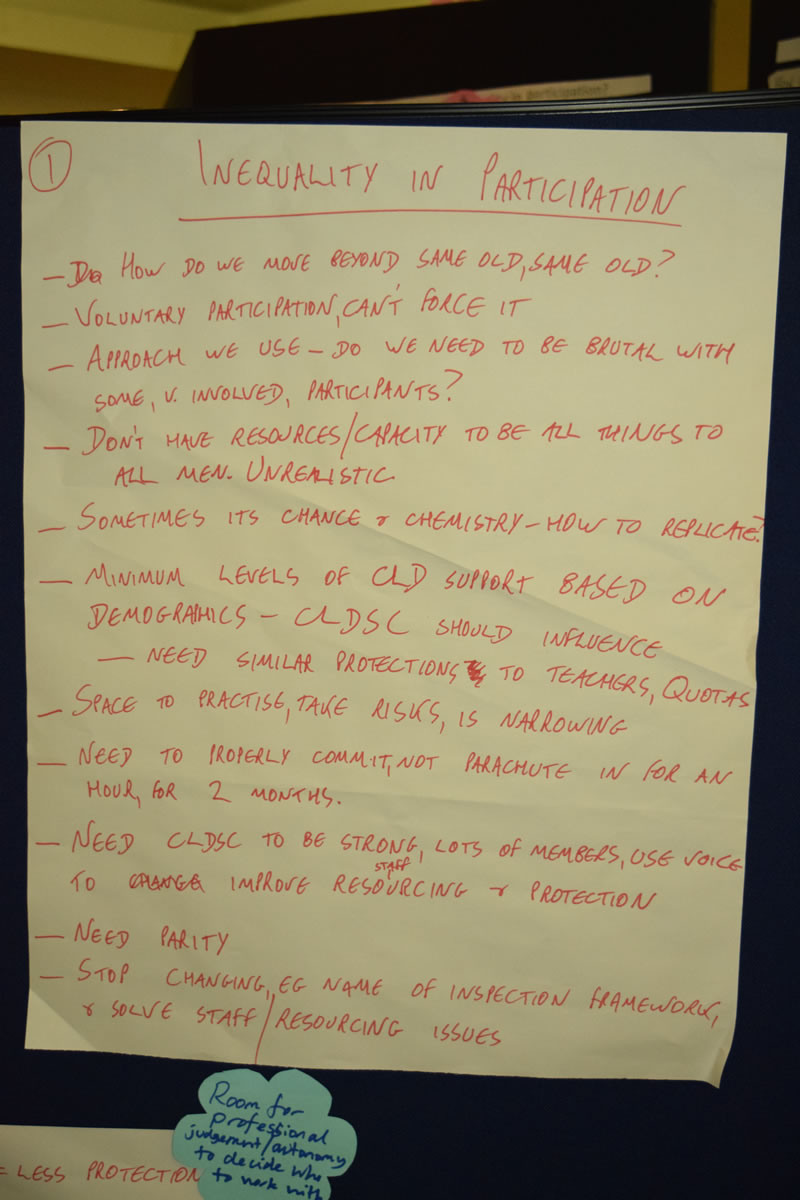 in participation?
1
INEQUALITY IN PARTICIPATION
— HOW DO WE MOVE BEYOND SAME OLD, SAME OLD?
— VOLUNTARY PARTICIPATION, CAN'T FORCE IT
— APPROACH WE USE – DO WE NEED TO BE BRUTAL WITH
SOME, V. INVOLVED, PARTICIPANTS?
— DON'T HAVE RESOURCES/CAPACITY TO BE ALL THINGS TO
ALL MEN. UNREALISTIC.
— SOMETIMES ITS CHANCE & CHEMISTRY – HOW TO REPLICATE?
— MINIMUM LEVELS OF CLD SUPPORT BASED ON
DEMOGRAPHICS – CLDSC SHOULD INFLUENCE
— NEED SIMILAR PROTECTIONS TO TEACHERS, QUOTAS
— SPACE TO PRACTISE, TAKE RISKS, IS NARROWING
— NEED TO PROPERLY COMMIT, NOT PARACHUTE IN FOR AN
HOUR, FOR 2 MONTHS.
— NEED CLDSC TO BE STRONG, LOTS OF MEMBERS, USE VOICE
TO CHANGE IMPROVE STAFF RESOURCING & PROTECTION
— NEED PARITY
— STOP CHANGING, EG NAME OF INSPECTION FRAMEWORK,
& SOLVE STAFF/RESOURCING ISSUES
Room for
professional
judgement/autonomy
to decide who
to work with
= LESS PROTECTION